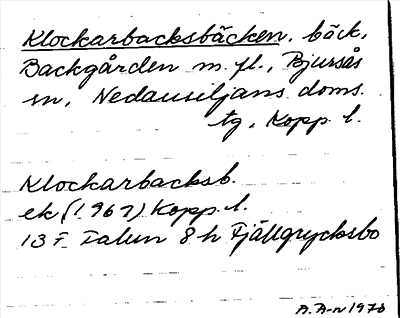 Klockarbacksbäcken, bäck,
Backgården m. fl., Bjursås
sn, Nedansiljans doms.
tg, Kopp. l.
Klockarbacksb.
ek (1967) Kopp. l.
13 F Falun 8 h Fjällgrycksbo
A. A-n 1970